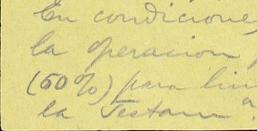 En condicione
la operacion
(50%) para lim
la Testam^a.